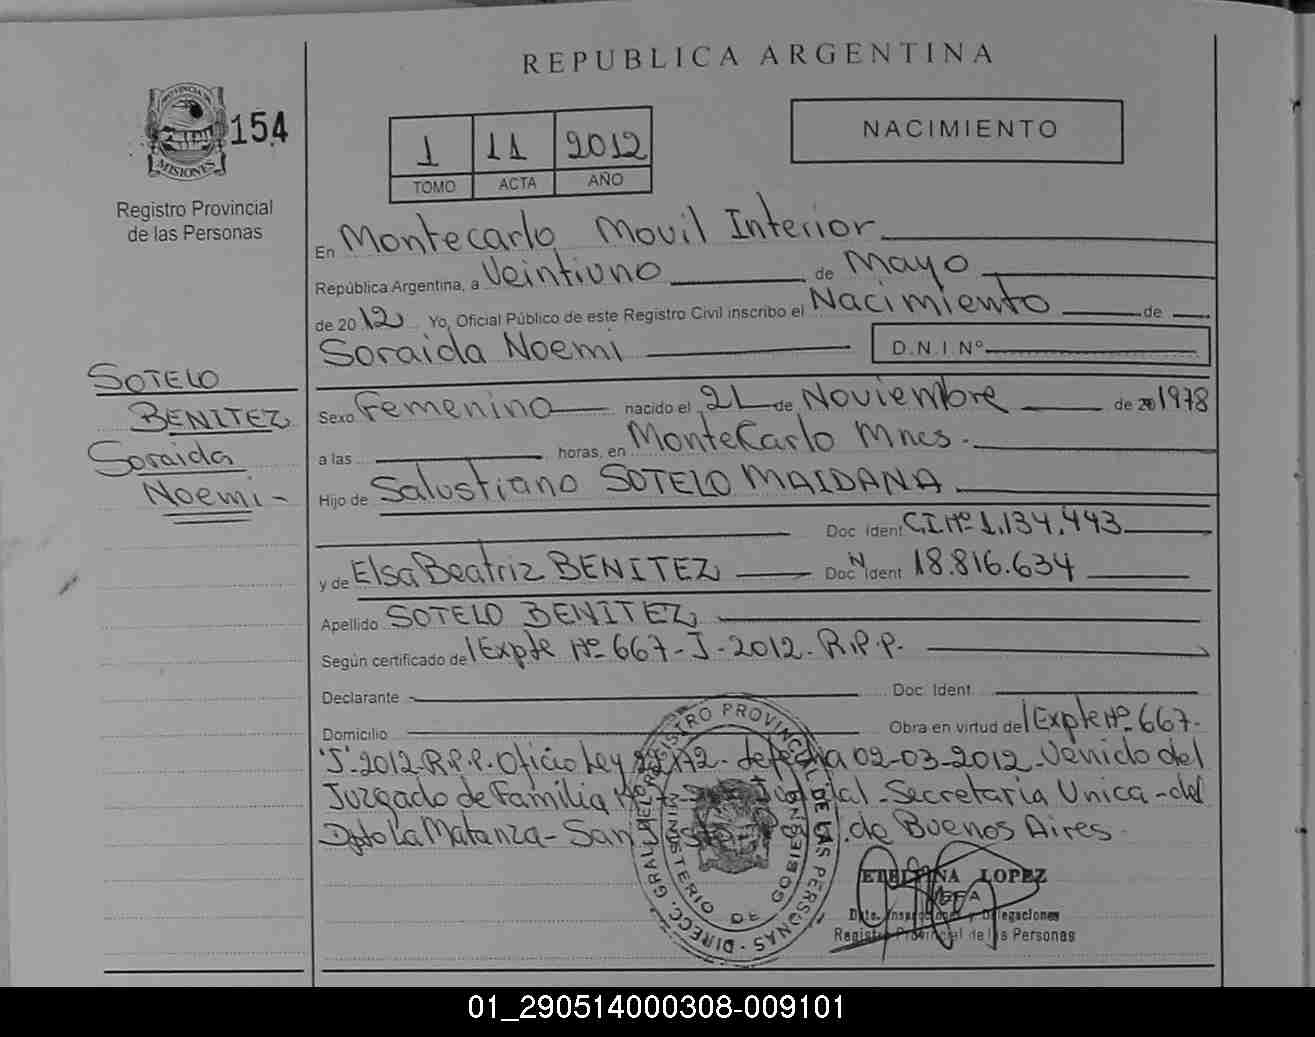 REPUBLICA ARGENTINA
PROVINCIA DE
MISIONES
154
Registro Provincial
de las Personas
1 11 2012
TOMO ACTA AÑO
NACIMIENTO
En Montecarlo Movil Interior
República Argentina, a Veintiuno de Mayo
de 2012 Yo, Oficial Público de este Registro Civil inscribo el Nacimiento de
Soraida Noemi D.N.I. Nº
SOTELO
BENITEZ
Soraida
Noemi-
Sexo Femenino nacido el 21 de Noviembre de 1978
a las horas, en MonteCarlo Mnes.
Hijo de Salustiano SOTELO MAIDANA
Doc Ident C.I.Nº 1.134.443
y de Elsa Beatriz BENITEZ Doc N Ident 18.816.634
Apellido SOTELO BENITEZ
Según certificado de Expte Nº 667-J-2012. R.P.P.
Declarante Doc. Ident.
Domicilio Obra en virtud de Expte Nº 667-
"J"-2012-R.P.P. Oficio Ley 22172- de fecha 02-03-2012-Venido del
Juzgado de Familia Judicial-Secretaria Unica-del
Dpto La Matanza-San Justo de Buenos Aires.
DIRECC. GRAL. DEL REGISTRO PROVINCIAL DE LAS PERSONAS
MINISTERIO DE GOBIERNO
ETELVINA LOPEZ
JEFA
Dpto. Inspecciones y Delegaciones
Registro Provincial de las Personas
01_290514000308-009101